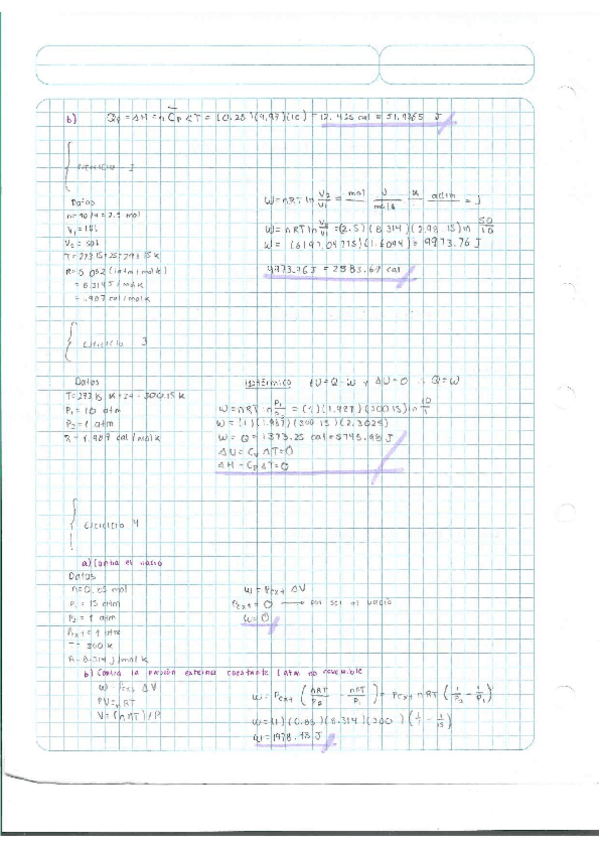 b) Qp = ΔH = n Cp ΔT = (0.25)(4.97)(10) = 12.425 cal = 51.9365 J
Datos
V₁ = 10 l
V₂ = 50 l
W = nRT ln V₂/V₁ = mol J/mol k
W = nRT ln V₂/V₁ = (2.5)(8.314)(298.15) ln 50/10
W = (6197.04775)(1.6094) = 9973.76 J
9973.76 J = 2383.67 cal
Ejercicio 3
Datos
P₁ = 10 atm
P₂ = 1 atm
R = 1.987 cal/mol k
Isotérmico ΔU = Q - W y ΔU = 0 ∴ Q = W
W = nRT ln P₁/P₂ = (1)(1.987)(300.15) ln 10/1
W = (1)(1.987)(300.15)(2.3025)
W = Q = 1373.25 cal = 5745.98 J
ΔU = Cv ΔT = 0
ΔH = Cp ΔT = 0
Ejercicio 4
a) Contra el vacío
Datos
P₁ = 15 atm
P₂ = 1 atm
Pext = 1 atm
T = 300 k
R = 8.314 J/mol k
W = Pext ΔV
Pext = 0 → por ser al vacío
W = 0
b) Contra la presión externa constante 1 atm no reversible
W = Pext ΔV
PV = nRT
V = (nRT)/P
W = Pext (nRT/P₂ - nRT/P₁) = Pext nRT (1/P₂ - 1/P₁)
W = (1)(0.85)(8.314)(300)(1/1 - 1/15)
W = 1978.73 J